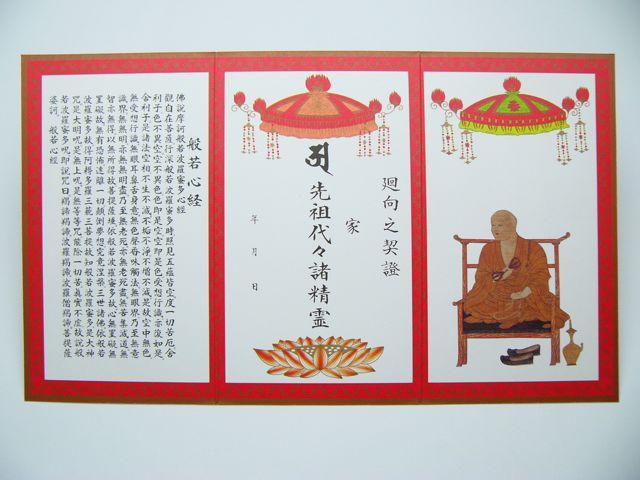 廻向之契證
家
𑖀 先祖代々諸精霊
年 月 日
般若心経
佛說摩訶般若波羅蜜多心経
觀自在菩薩行深般若波羅蜜多時照見五蘊皆空度一切苦厄舍
利子色不異空空不異色色即是空空即是色受想行識亦復如是
舍利子是諸法空相不生不滅不垢不淨不增不減是故空中無色
無受想行識無眼耳鼻舌身意無色聲香味觸法無眼界乃至無意
識界無無明亦無無明盡乃至無老死亦無老死盡無苦集滅道無
智亦無得以無所得故菩提薩埵依般若波羅蜜多故心無罣礙無
罣礙故無有恐怖遠離一切顛倒夢想究竟涅槃三世諸佛依般若
波羅蜜多故得阿耨多羅三藐三菩提故知般若波羅蜜多是大神
呪是大明呪是無上呪是無等等呪能除一切苦真實不虚故說般
若波羅蜜多呪即說呪曰羯諦羯諦波羅羯諦波羅僧羯諦菩提薩
婆訶 般若心経